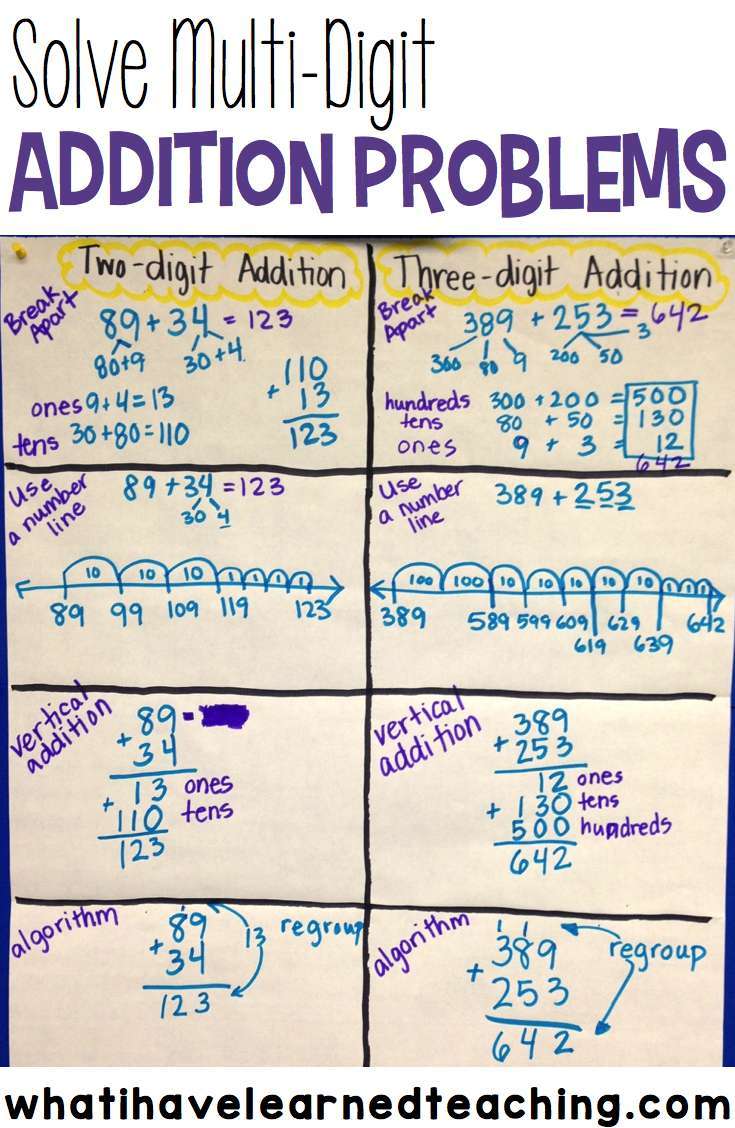 Solve Multi-Digit
ADDITION PROBLEMS
Two-digit Addition
Break Apart
89 + 34 = 123
80+9 30+4
ones 9+4=13
tens 30+80=110
110
+ 13
123
Three-digit Addition
Break Apart
389 + 253 = 642
300 80 9 200 50 3
hundreds 300 + 200 = 500
tens 80 + 50 = 130
ones 9 + 3 = 12
642
use a number line
89 + 34 = 123
30 4
10 10 10 1 1 1 1
89 99 109 119 123
use a number line
389 + 253
100 100 10 10 10 10 10 1 1 1
389 589 599 609 619 629 639 642
vertical addition
89 =
+ 34
13 ones
+ 110 tens
123
vertical addition
389
+ 253
12 ones
+ 130 tens
500 hundreds
642
algorithm
1
89
+ 34
123
13 regroup
algorithm
1 1
389
+ 253
642
regroup
whatihavelearnedteaching.com